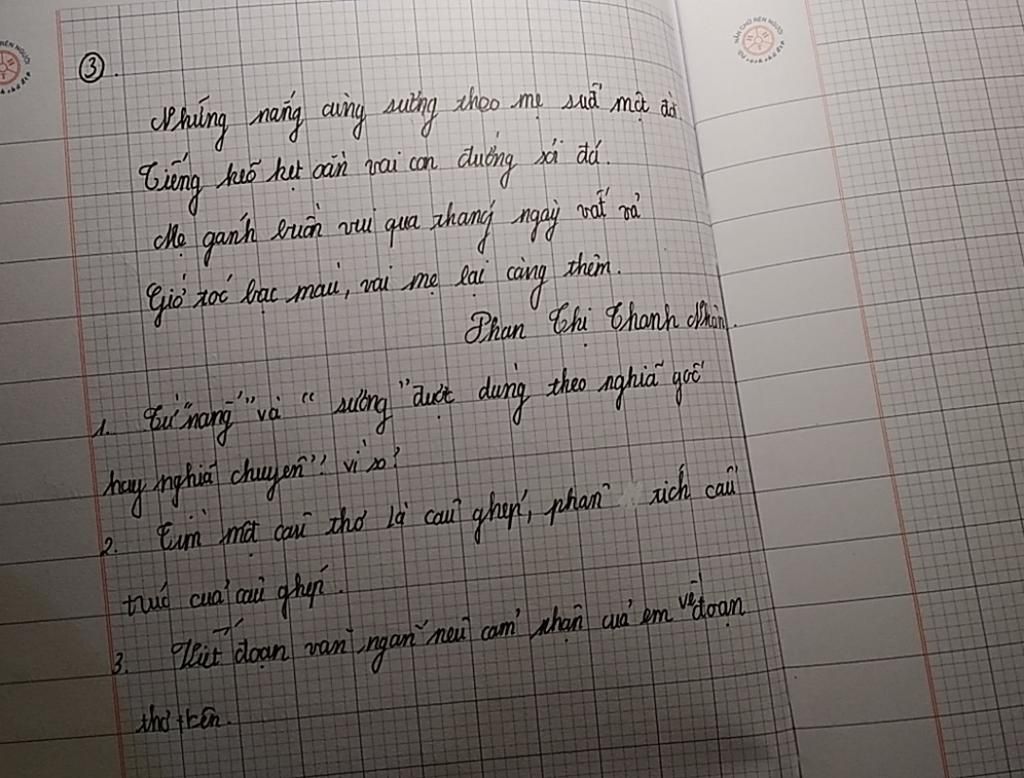 ③.
Những nắng cùng sương theo mẹ suốt một đời
Tiếng kẽo kẹt oằn vai con đường sỏi đá.
Mẹ gánh buồn vui qua tháng ngày vất vả
Gió tóc bạc màu, vai mẹ lại càng thêm.
Phan Thị Thanh Nhàn.
1. Từ "nắng" và "sương" được dùng theo nghĩa gốc
hay nghĩa chuyển? vì sao?
2. Tìm một câu thơ là câu ghép, phân tích cấu
trúc của câu ghép.
3. Viết đoạn văn ngắn nêu cảm nhận của em về đoạn
thơ trên.